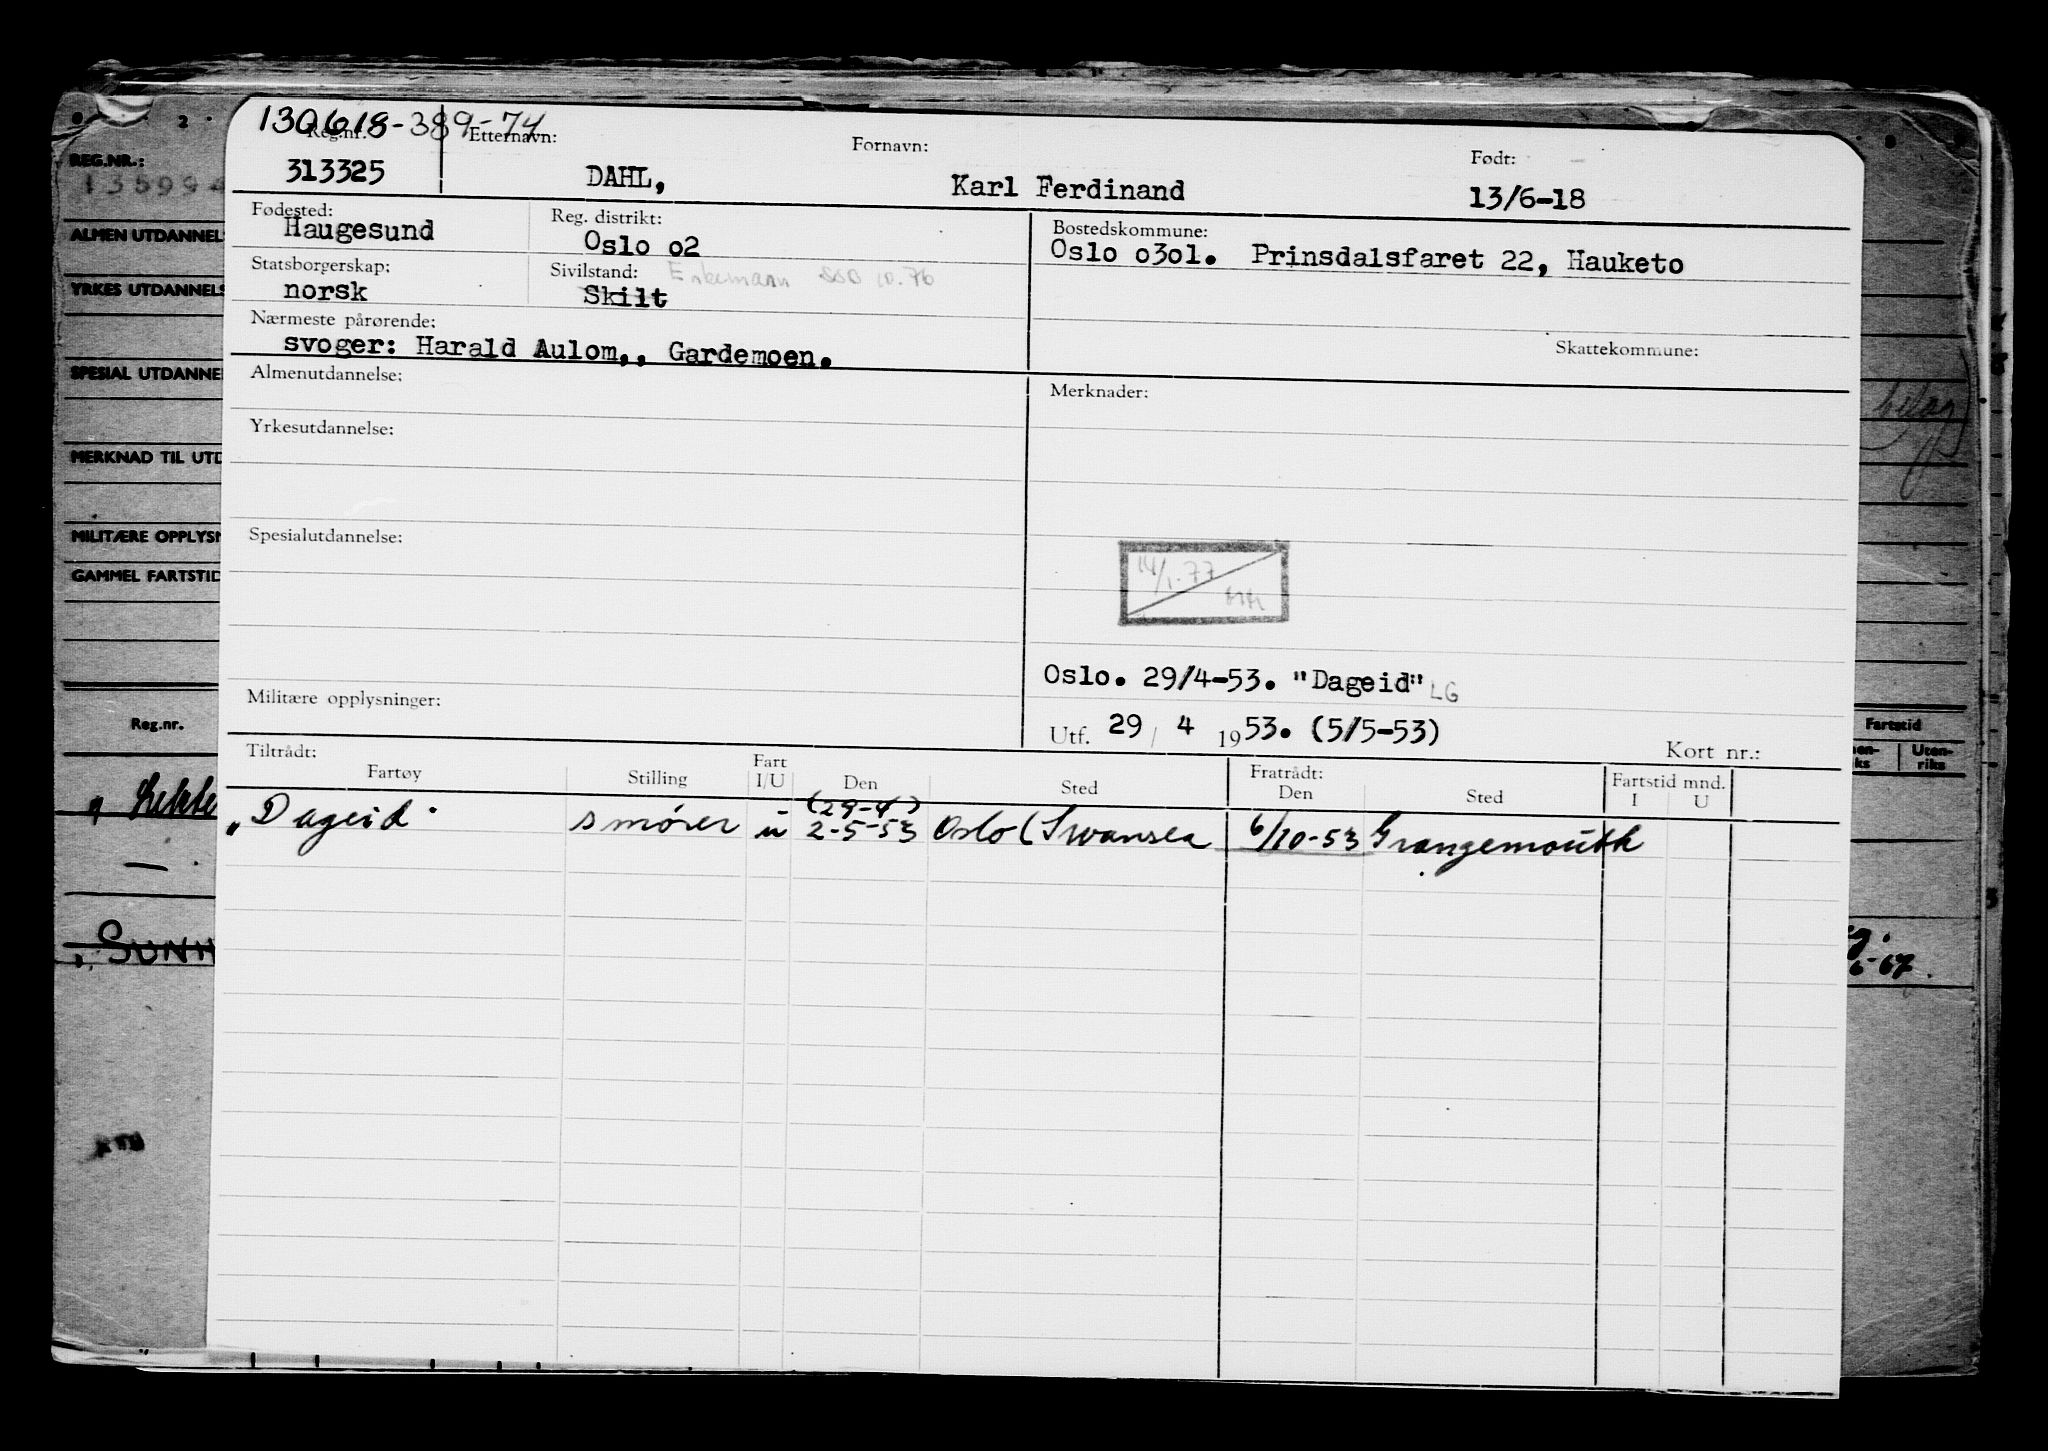 130618-389-74
Reg.nr. Etternavn: Fornavn: Født:
313325 DAHL, Karl Ferdinand 13/6-18
Fødested: Reg. distrikt: Bostedskommune:
Haugesund Oslo o2 Oslo o3o1. Prinsdalsfaret 22, Hauketo
Statsborgerskap: Sivilstand: Enkemann SSB 10.76
norsk Skilt
Nærmeste pårørende:
svoger: Harald Aulom,, Gardemoen.
Skattekommune:
Almenutdannelse: Merknader:
Yrkesutdannelse:
Spesialutdannelse:
14/1-77
Oslo. 29/4-53. "Dageid" LG
Militære opplysninger:
Utf. 29 / 4 1953. (5/5-53)
Kort nr.:
Tiltrådt: Fratrådt:
Fartøy Stilling Fart I/U Den Sted Den Sted Fartstid mnd. I U
(29-4)
"Dageid" smører u 2-5-53 Oslo (Swansea 6/10-53 Grangemouth
2
REG.NR.:
135994
ALMEN UTDANNELS
YRKES UTDANNELS
SPESIAL UTDANNEL
MERKNAD TIL UTD
MILITÆRE OPPLYSN
GAMMEL FARTSTID
Reg.nr. Fartstid
nen-
ks
Uten-
riks
SUNN
6-67.